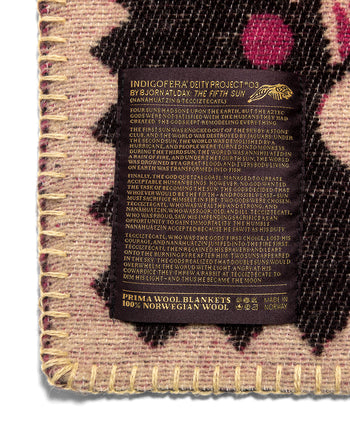 INDIGOFERA DEITY PROJECT Nº03
BY BJORN ATLDAX: THE FIFTH SUN
(NANAHUATZIN & TECCIZTECATL)
FOUR SUNS HAD SONE ON THE EARTH, BUT THE AZTEC
GODS WERE NOT SATISFIED WITH THE HUMANS THEY HAD
CREATED
THE FIRST SUN WAS KNOCKED OUT OF THE SKY BY A STONE
CLUB, AND THE WORLD WAS DESTROYED BY JAGUARS. UNDER
THE SECOND SUN, THE WORLD WAS DEMOLISHED BY A
HURRICANE, AND PEOPLE WERE TURNED INTO MONKEYS.
DURING THE THIRD SUN, THE WORLD WAS DESTROYED BY
A RAIN OF FIRE, AND UNDER THE FOURTH SUN, THE WORLD
WAS DROWNED BY A GREAT FLOOD, AND EVERYBODY LIVING
ON EARTH WAS TRANSFORMED INTO FISH.
FINALLY, THE GODS
ACCEPTABLE HUMAN BEINGS. HOWEVER, NO GOD WANTED
THE TASK OF BECOMING THE SUN. THE GODS DECIDED THAT
WHOEVER WOULD BE THE
MUST SACRIFICE HIMSELF IN FIRE. TWO GODS WERE CHOSEN:
TECCIZTECATL, WHO WAS WEALTHY AND STRONG, AND
NANAHUATZIN, WHO WAS POOR, OLD AND ILL. TECCIZTECATL,
WHO WAS PROUD, SAW
OPPORTUNITY TO GAIN IMMORTALITY, WHILE THE HUMBLE
NANAHUATZIN ACCEPTED BECAUSE HE SAW IT AS HIS DUTY.
TECCIZTECATL, WHO WAS
COURAGE, AND NANAHUATZIN JUMPED INTO THE FIRE FIRST.
TECCIZTECATL THEN REGAINED HIS BRAVERY AND LEAPT
ONTO THE BURNING PYRE AFTER HIM. TWO SUNS APPEARED
IN THE SKY. THE GODS REALIZED THAT DOUBLE SUNS WOULD
OVERWHELM THE WORLD WITH LIGHT. ANGRY AT HIS
COWARDICE THEY THREW A RABBIT AT TECCIZTECATL TO
DIM HIS LIGHT – AND THUS HE BECAME THE MOON.
PRIMA WOOL BLANKETS
100% NORWEGIAN WOOL
MADE IN
NORWAY